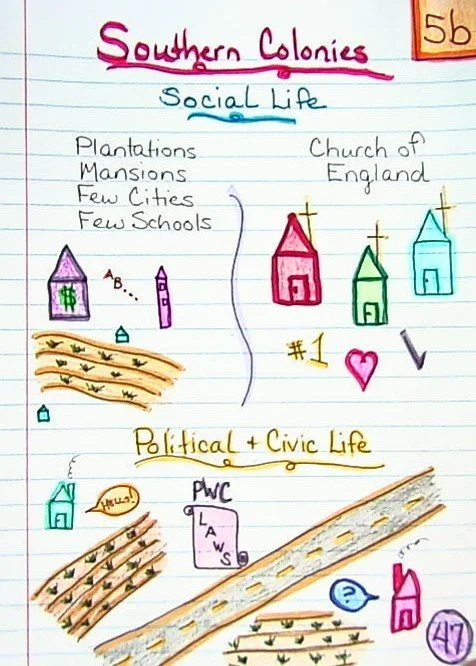 5b
Southern Colonies
Social Life
Plantations
Mansions
Few Cities
Few Schools
Church of
England
$
AB...
#1
Political + Civic Life
HELLO!
PWC
LAWS
?
47